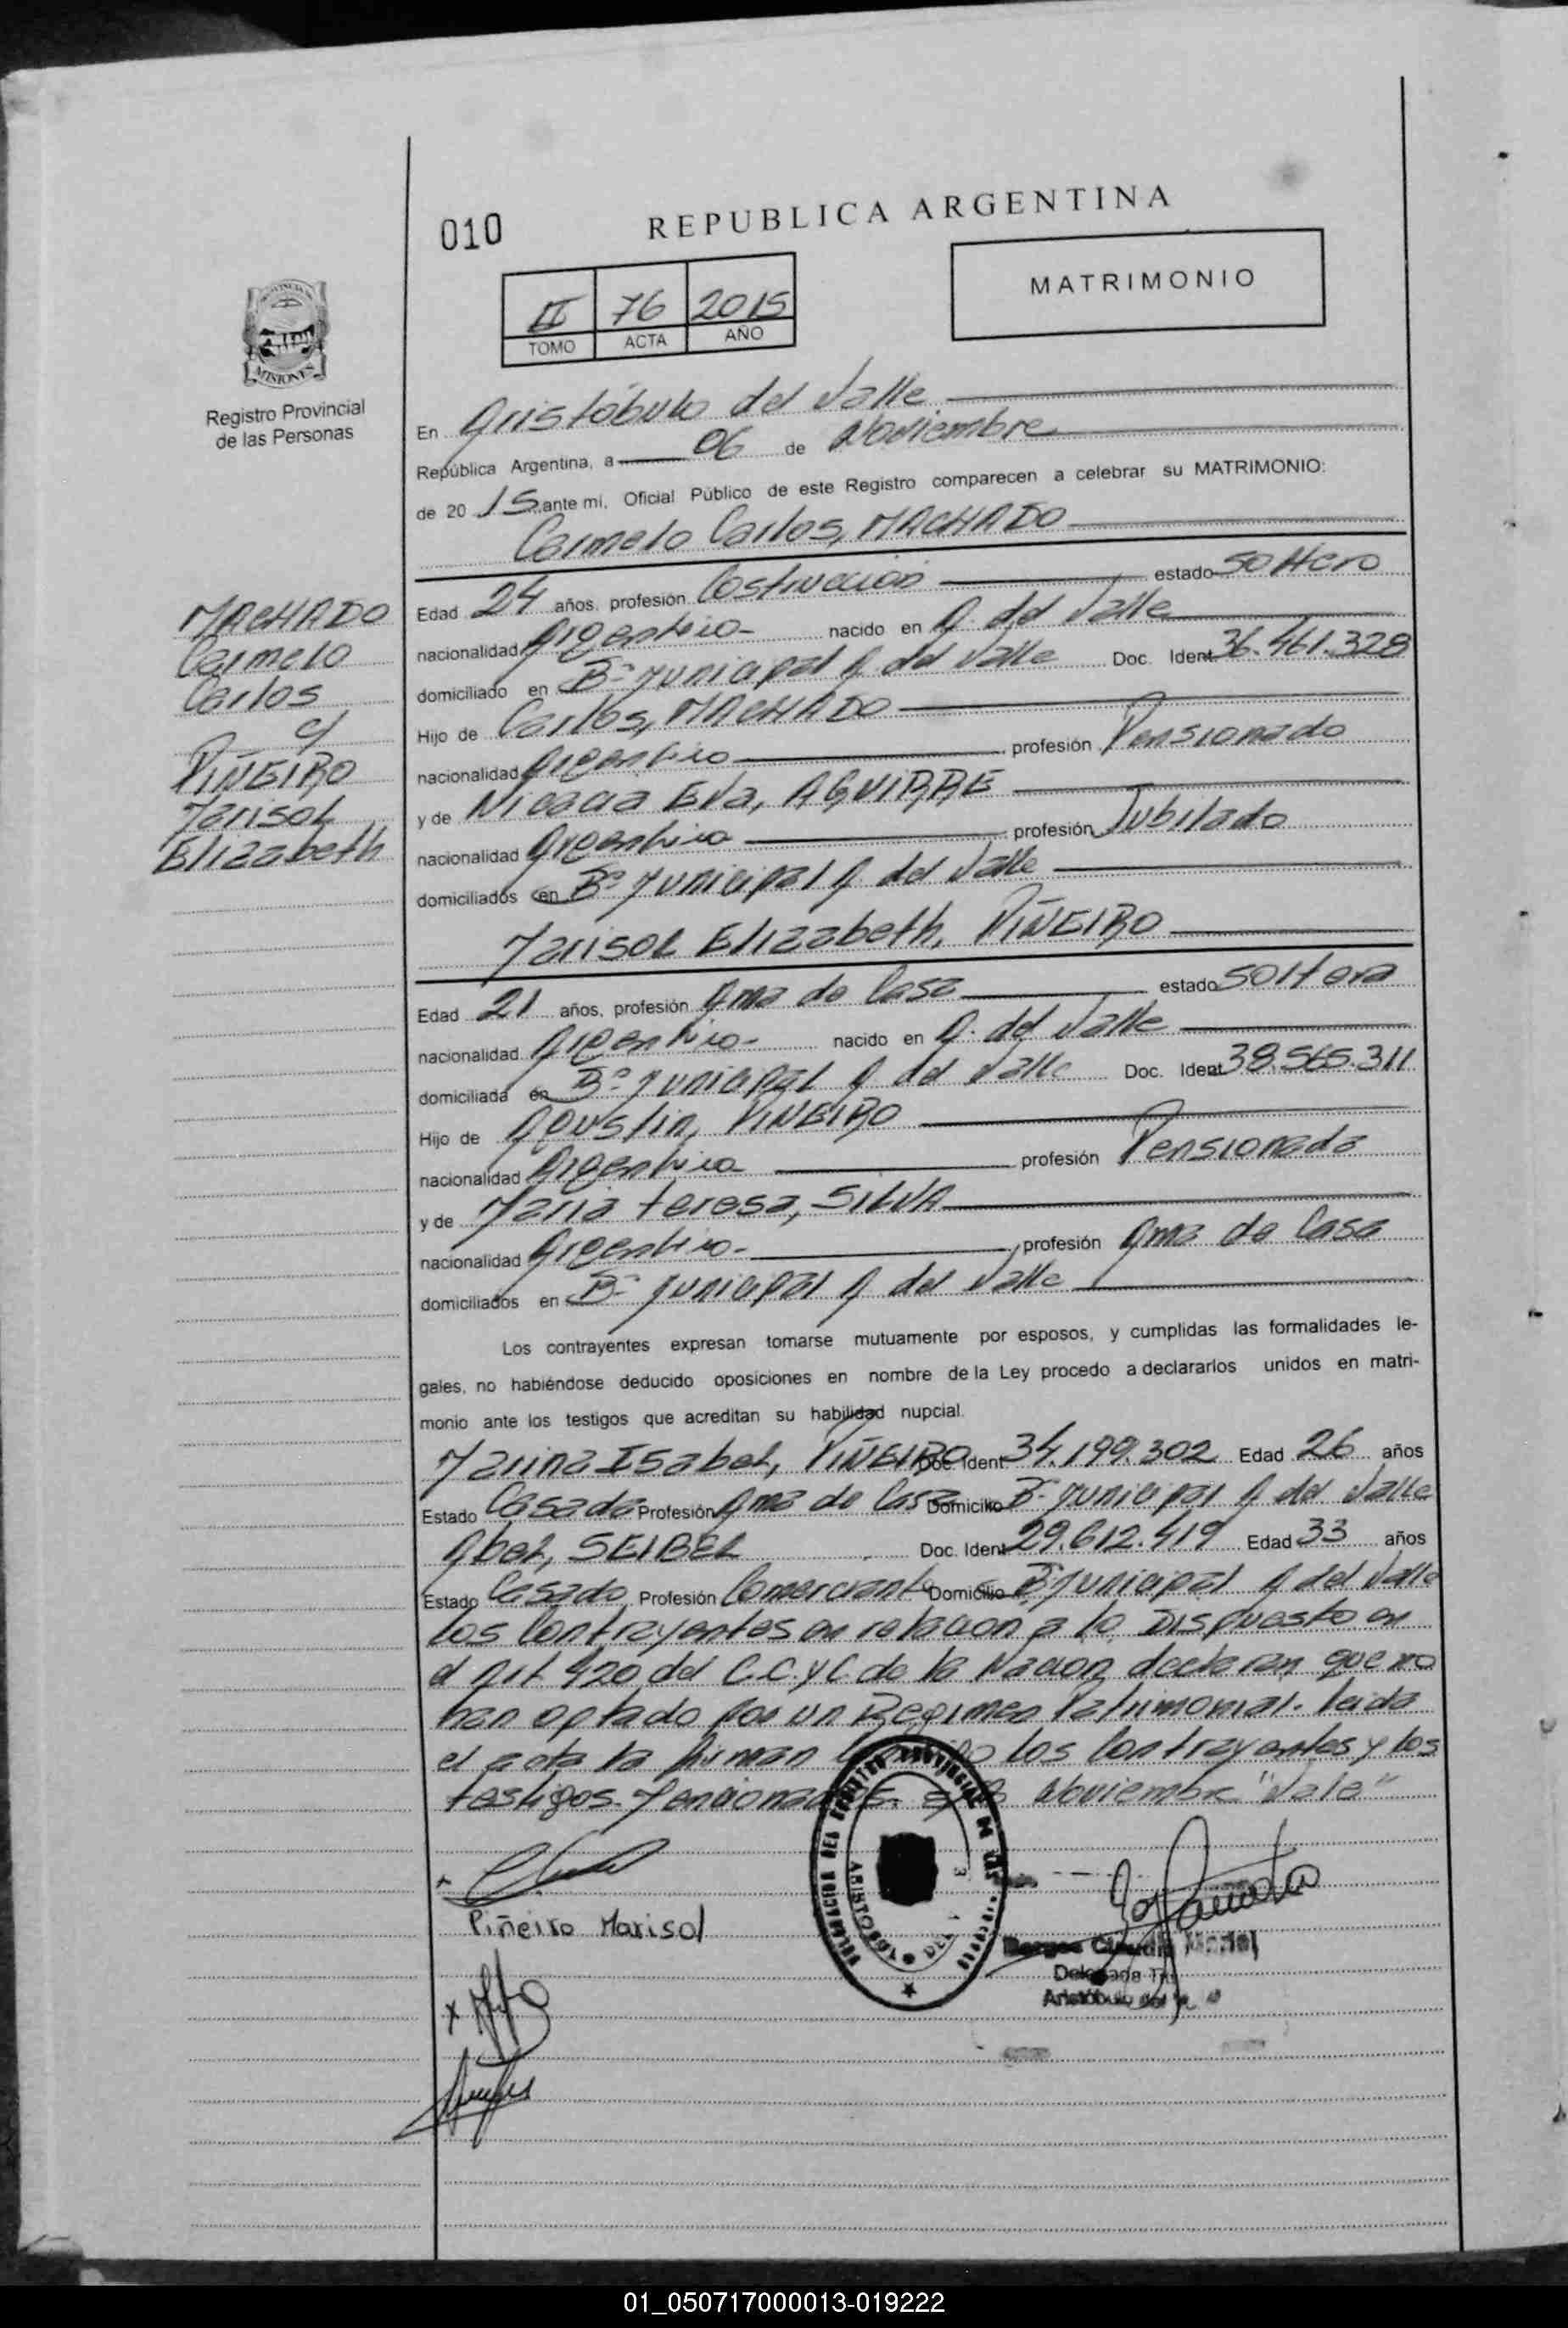 010
REPUBLICA ARGENTINA
II 76 2015
TOMO ACTA AÑO
MATRIMONIO
PROVINCIA DE
MISIONES
Registro Provincial
de las Personas
En Aristóbulo del Valle
República Argentina, a 06 de Noviembre
de 20 15 ante mi, Oficial Público de este Registro comparecen a celebrar su MATRIMONIO:
Carmelo Carlos, MACHADO
MACHADO
Carmelo
Carlos
c/
PIÑEIRO
Marisol
Elizabeth
Edad 24 años, profesión Costrucción estado soltero
nacionalidad Argentino- nacido en A. del Valle
domiciliado en Bº Municipal A. del Valle Doc. Ident 36.461.328
Hijo de Carlos, MACHADO
nacionalidad Argentino profesión Pensionado
y de Nicacia Eva, AGUIRRE
nacionalidad Argentina profesión Jubilado
domiciliados en Bº Municipal A. del Valle
Marisol Elizabeth, PIÑEIRO
Edad 21 años, profesión Ama de Casa estado soltera
nacionalidad Argentina- nacido en A. del Valle
domiciliada en Bº Municipal A del Valle Doc. Ident 38.565.311
Hijo de Agustin, PIÑEIRO
nacionalidad Argentino profesión Pensionado
y de Maria teresa, SILVA
nacionalidad Argentina- profesión Ama de Casa
domiciliados en Bº Municipal A del Valle
Los contrayentes expresan tomarse mutuamente por esposos, y cumplidas las formalidades le-
gales, no habiéndose deducido oposiciones en nombre de la Ley procedo a declararlos unidos en matri-
monio ante los testigos que acreditan su habilidad nupcial.
Marina Isabel, PIÑEIRO Doc. Ident 34.199.302 Edad 26 años
Estado Casada Profesión Ama de Casa Domicilio Bº Municipal A del Valle
Abel, SEIBEL Doc. Ident 29.612.419 Edad 33 años
Estado Casado Profesión Comerciante Domicilio Bº Municipal A del Valle
los Contrayentes en relacion a lo Dispuesto en
el Art 420 del C.C.y C. de la Nacion declaran que no
han optado por un Regimen Patrimonial. leida
el acta la firman los Contrayentes y los
testigos Mencionados. Noviembre "Vale"
Piñeiro Marisol
DELEGACION DEL REGISTRO PROVINCIAL DE LAS
Borges Claudia
Delegada
Aristóbulo del
01_050717000013-019222